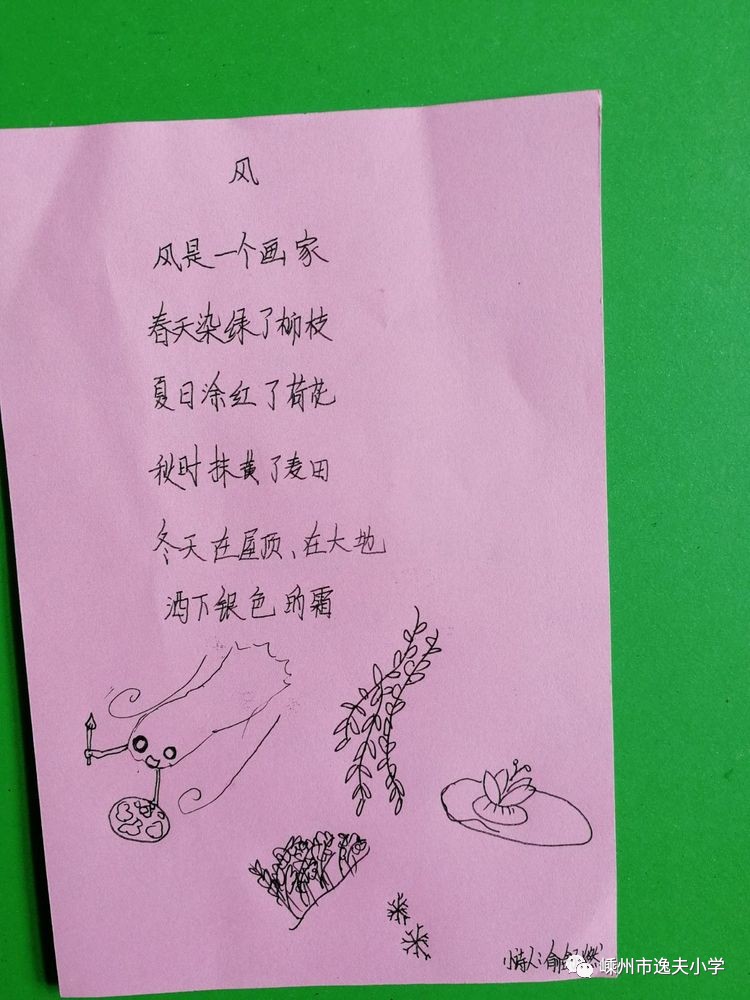 风
风是一个画家
春天染绿了柳枝
夏日涂红了荷花
秋时抹黄了麦田
冬天在屋顶、在大地
洒下银色的霜
小诗人:俞
嵊州市逸夫小学